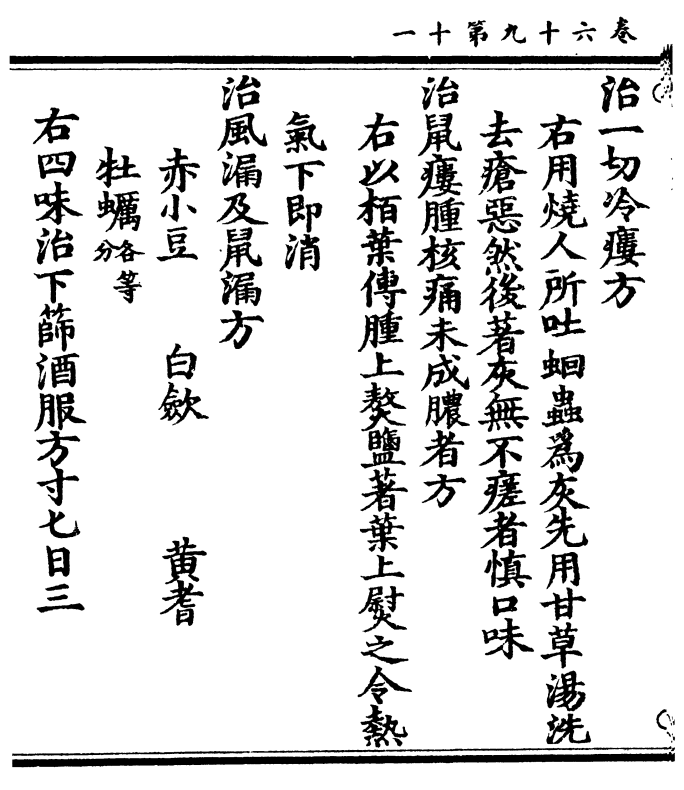 卷六十九第十一
治一切冷瘻方
右用燒人所吐蛔蟲爲灰先用甘草湯洗
去瘡惡然後著灰無不瘥者慎口味
治鼠瘻腫核痛未成膿者方
右以栢葉傅腫上熬鹽著葉上熨之令熱
氣下即消
治風漏及鼠漏方
赤小豆 白歛 黄耆
牡蠣各等分
右四味治下篩酒服方寸七日三